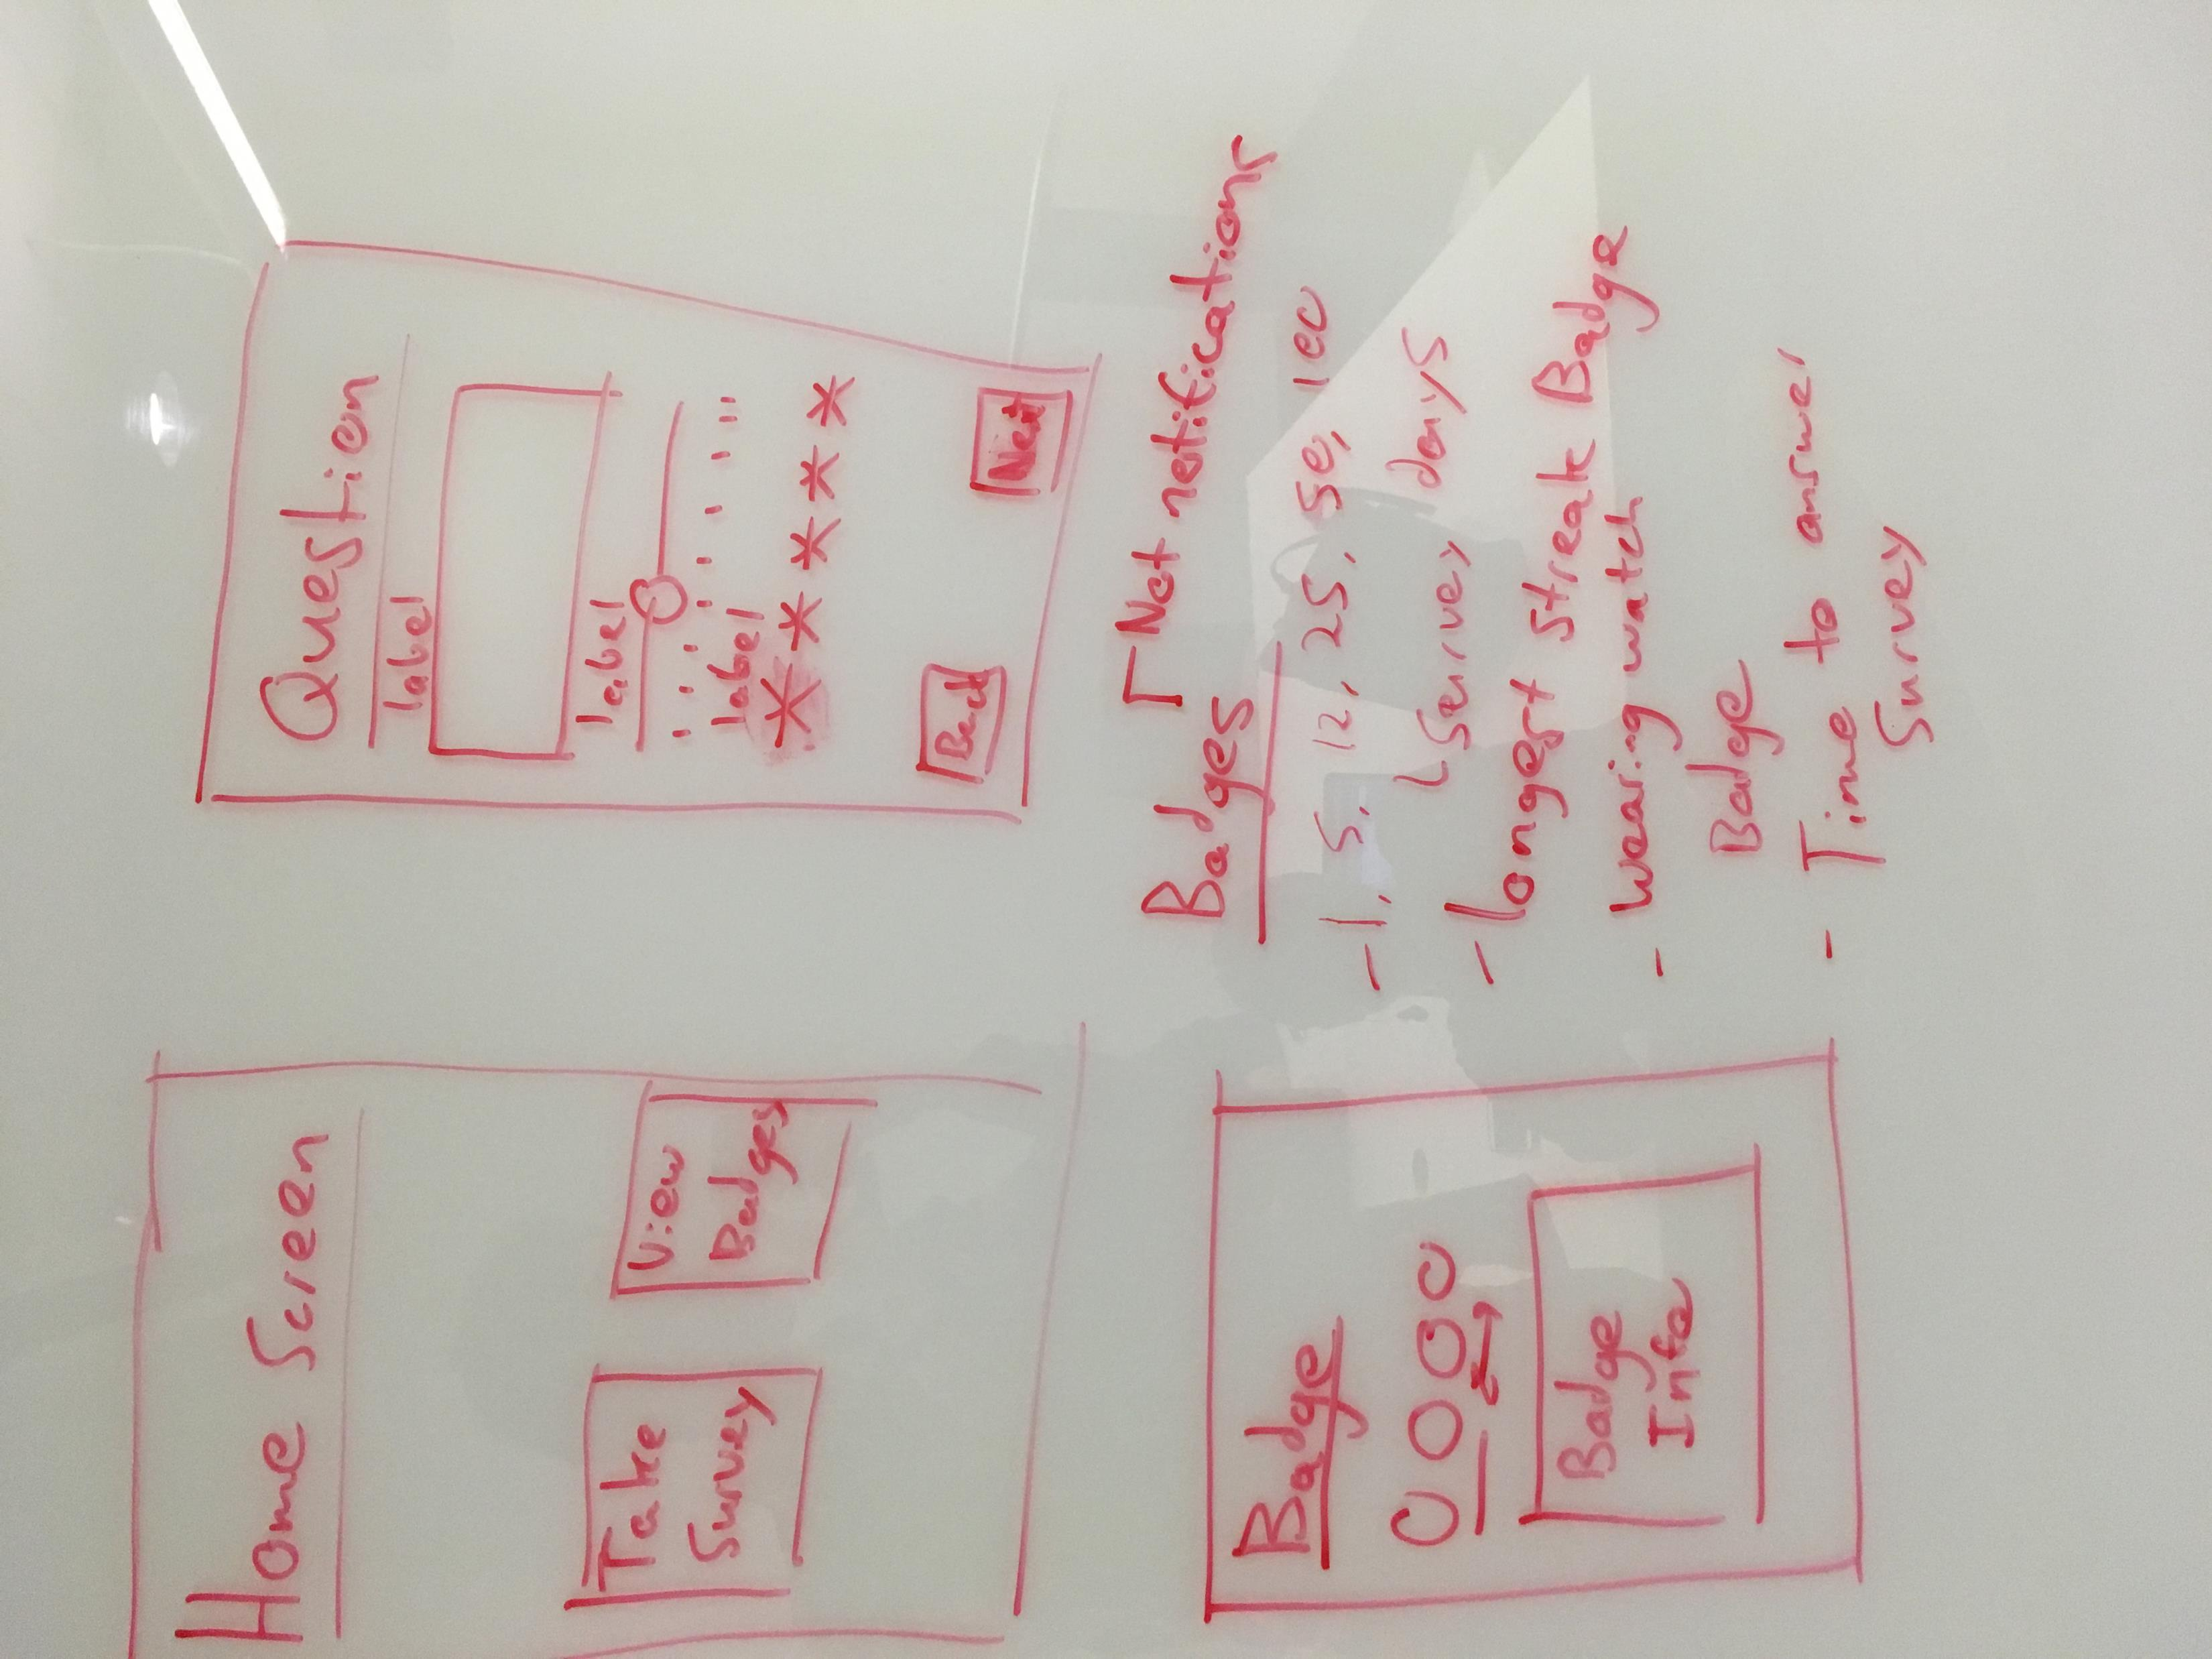 Home Screen
Take
Survey
View
Badges
Question
label
label
label
Back
Next
Badge
Badge
Info
Badges
Net notifications
- 1, 5, 12, 25, 50, 100
Survey days
- longest streak Badge
- wearing watch
Badge
- Time to answer
Survey